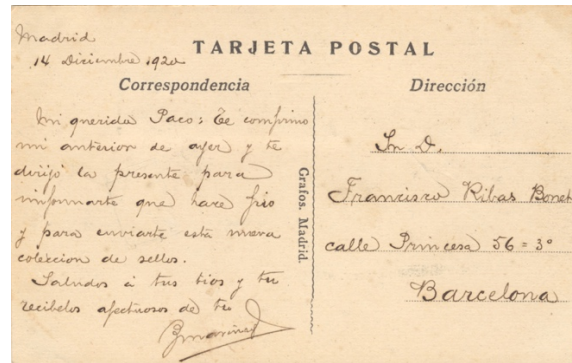 Madrid
14 Diciembre 1920
TARJETA POSTAL
Correspondencia
Mi querido Paco: Te confirmo
mi anterior de ayer y te
dirijo la presente para
informarte que hace frio
y para enviarte esta nueva
coleccion de sellos.
Saludos á tus tios y tu
recibelos afectuosos de tu
Grafos. Madrid.
Dirección
Sr. D.
Francisco Ribas Bonet
calle Princesa 56=3º
Barcelona